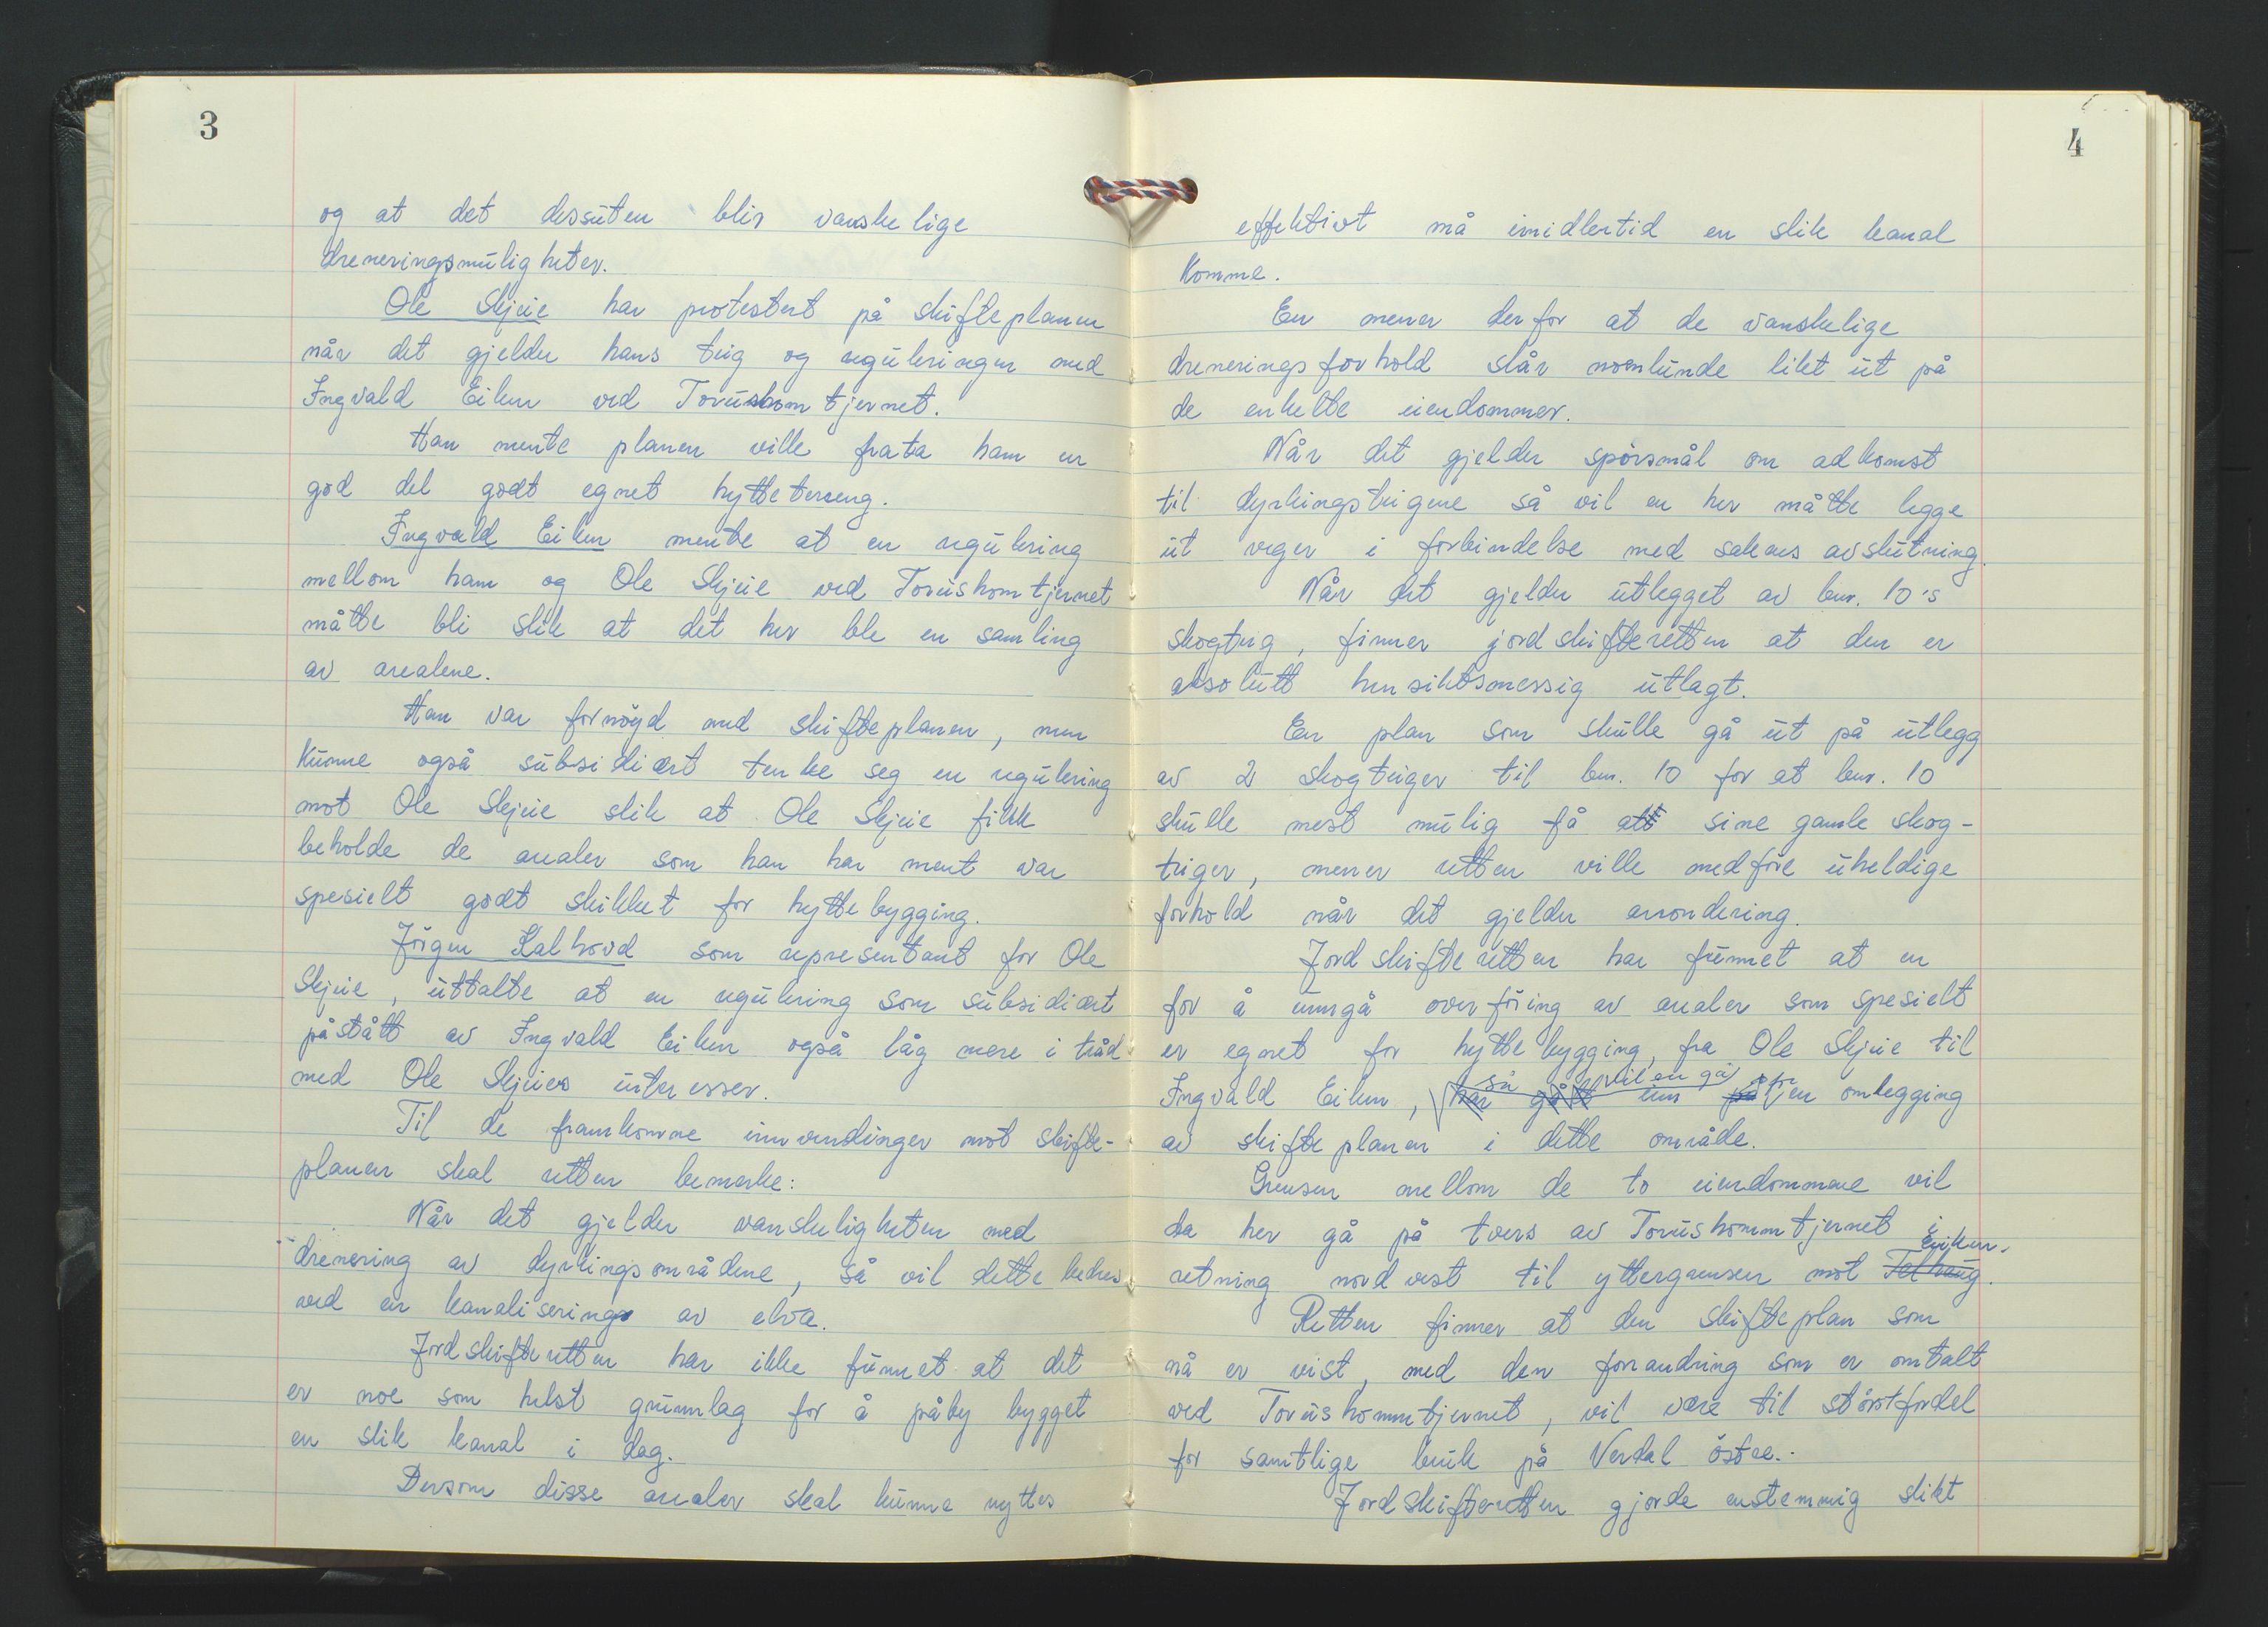 3
og at det dessuten blir vanskelige
dreneringsmuligheter.
Ole Skjeie har protestert på skifteplanen
når det gjelder hans teig og reguleringen med
Ingvald Eiken ved Torushomtjernet.
Han mente planen ville frata ham en
god del godt egnet hytteterreng.
Ingvald Eiken mente at en regulering
mellom ham og Ole Skjeie ved Torushomtjernet
måtte bli slik at det her ble en samling
av arealene.
Han var fornöyd med skifteplanen, men
kunne også subsidiært tenke seg en regulering
mot Ole Skjeie slik at Ole Skjeie fikk
beholde de arealer som han har ment var
spesielt godt skikket for hyttebygging.
Jörgen Kalhovd som representant for Ole
Skjeie, uttalte at en regulering som subsidiært
påstått av Ingvald Eiken også låg mere i tråd
med Ole Skjeies interesser.
Til de framkomne innvendinger mot skifte-
planen skal retten bemerke:
Når det gjelder vanskeligheten med
drenering av dyrkingsområdene, så vil dette bedres
ved en kanalisering av elva.
Jordskifteretten har ikke funnet at det
er noe som helst grunnlag for å påby bygget
en slik kanal i dag.
Dersom disse arealer skal kunne nyttes
4
effektivt må imidlertid en slik kanal
komme.
En mener derfor at de vanskelige
dreneringsforhold slår noenlunde likt ut på
de enkelte eiendommer.
Når det gjelder spörsmål om adkomst
til dyrkingsteigene så vil en her måtte legge
ut veger i forbindelse med sakens avslutning.
Når det gjelder utlegget av bnr. 10's
skogteig, finner jordskifteretten at den er
absolutt hensiktsmessig utlagt.
En plan som skulle gå ut på utlegg
av 2 skogteiger til bnr. 10 for at bnr. 10
skulle mest mulig få att sine gamle skog-
teiger, mener retten ville medföre uheldige
forhold når det gjelder arrondering.
Jordskifteretten har funnet at en
for å unngå overföring av arealer som spesielt
er egnet for hyttebygging, fra Ole Skjeie til
så vil en gå for
Ingvald Eiken, har gått inn på en omlegging
av skifteplanen i dette område.
Grensen mellom de to eiendommene vil
da her gå på tvers av Torushommtjernet i
Eriksen.
retning nordvest til yttergrensen mot
Retten finner at den skifteplan som
nå er vist, med den forrandring som er omtalt
ved Torushommtjernet, vil være til störst fordel
for samtlige bruk på Verdal östre.
Jordskifteretten gjorde enstemmig slikt